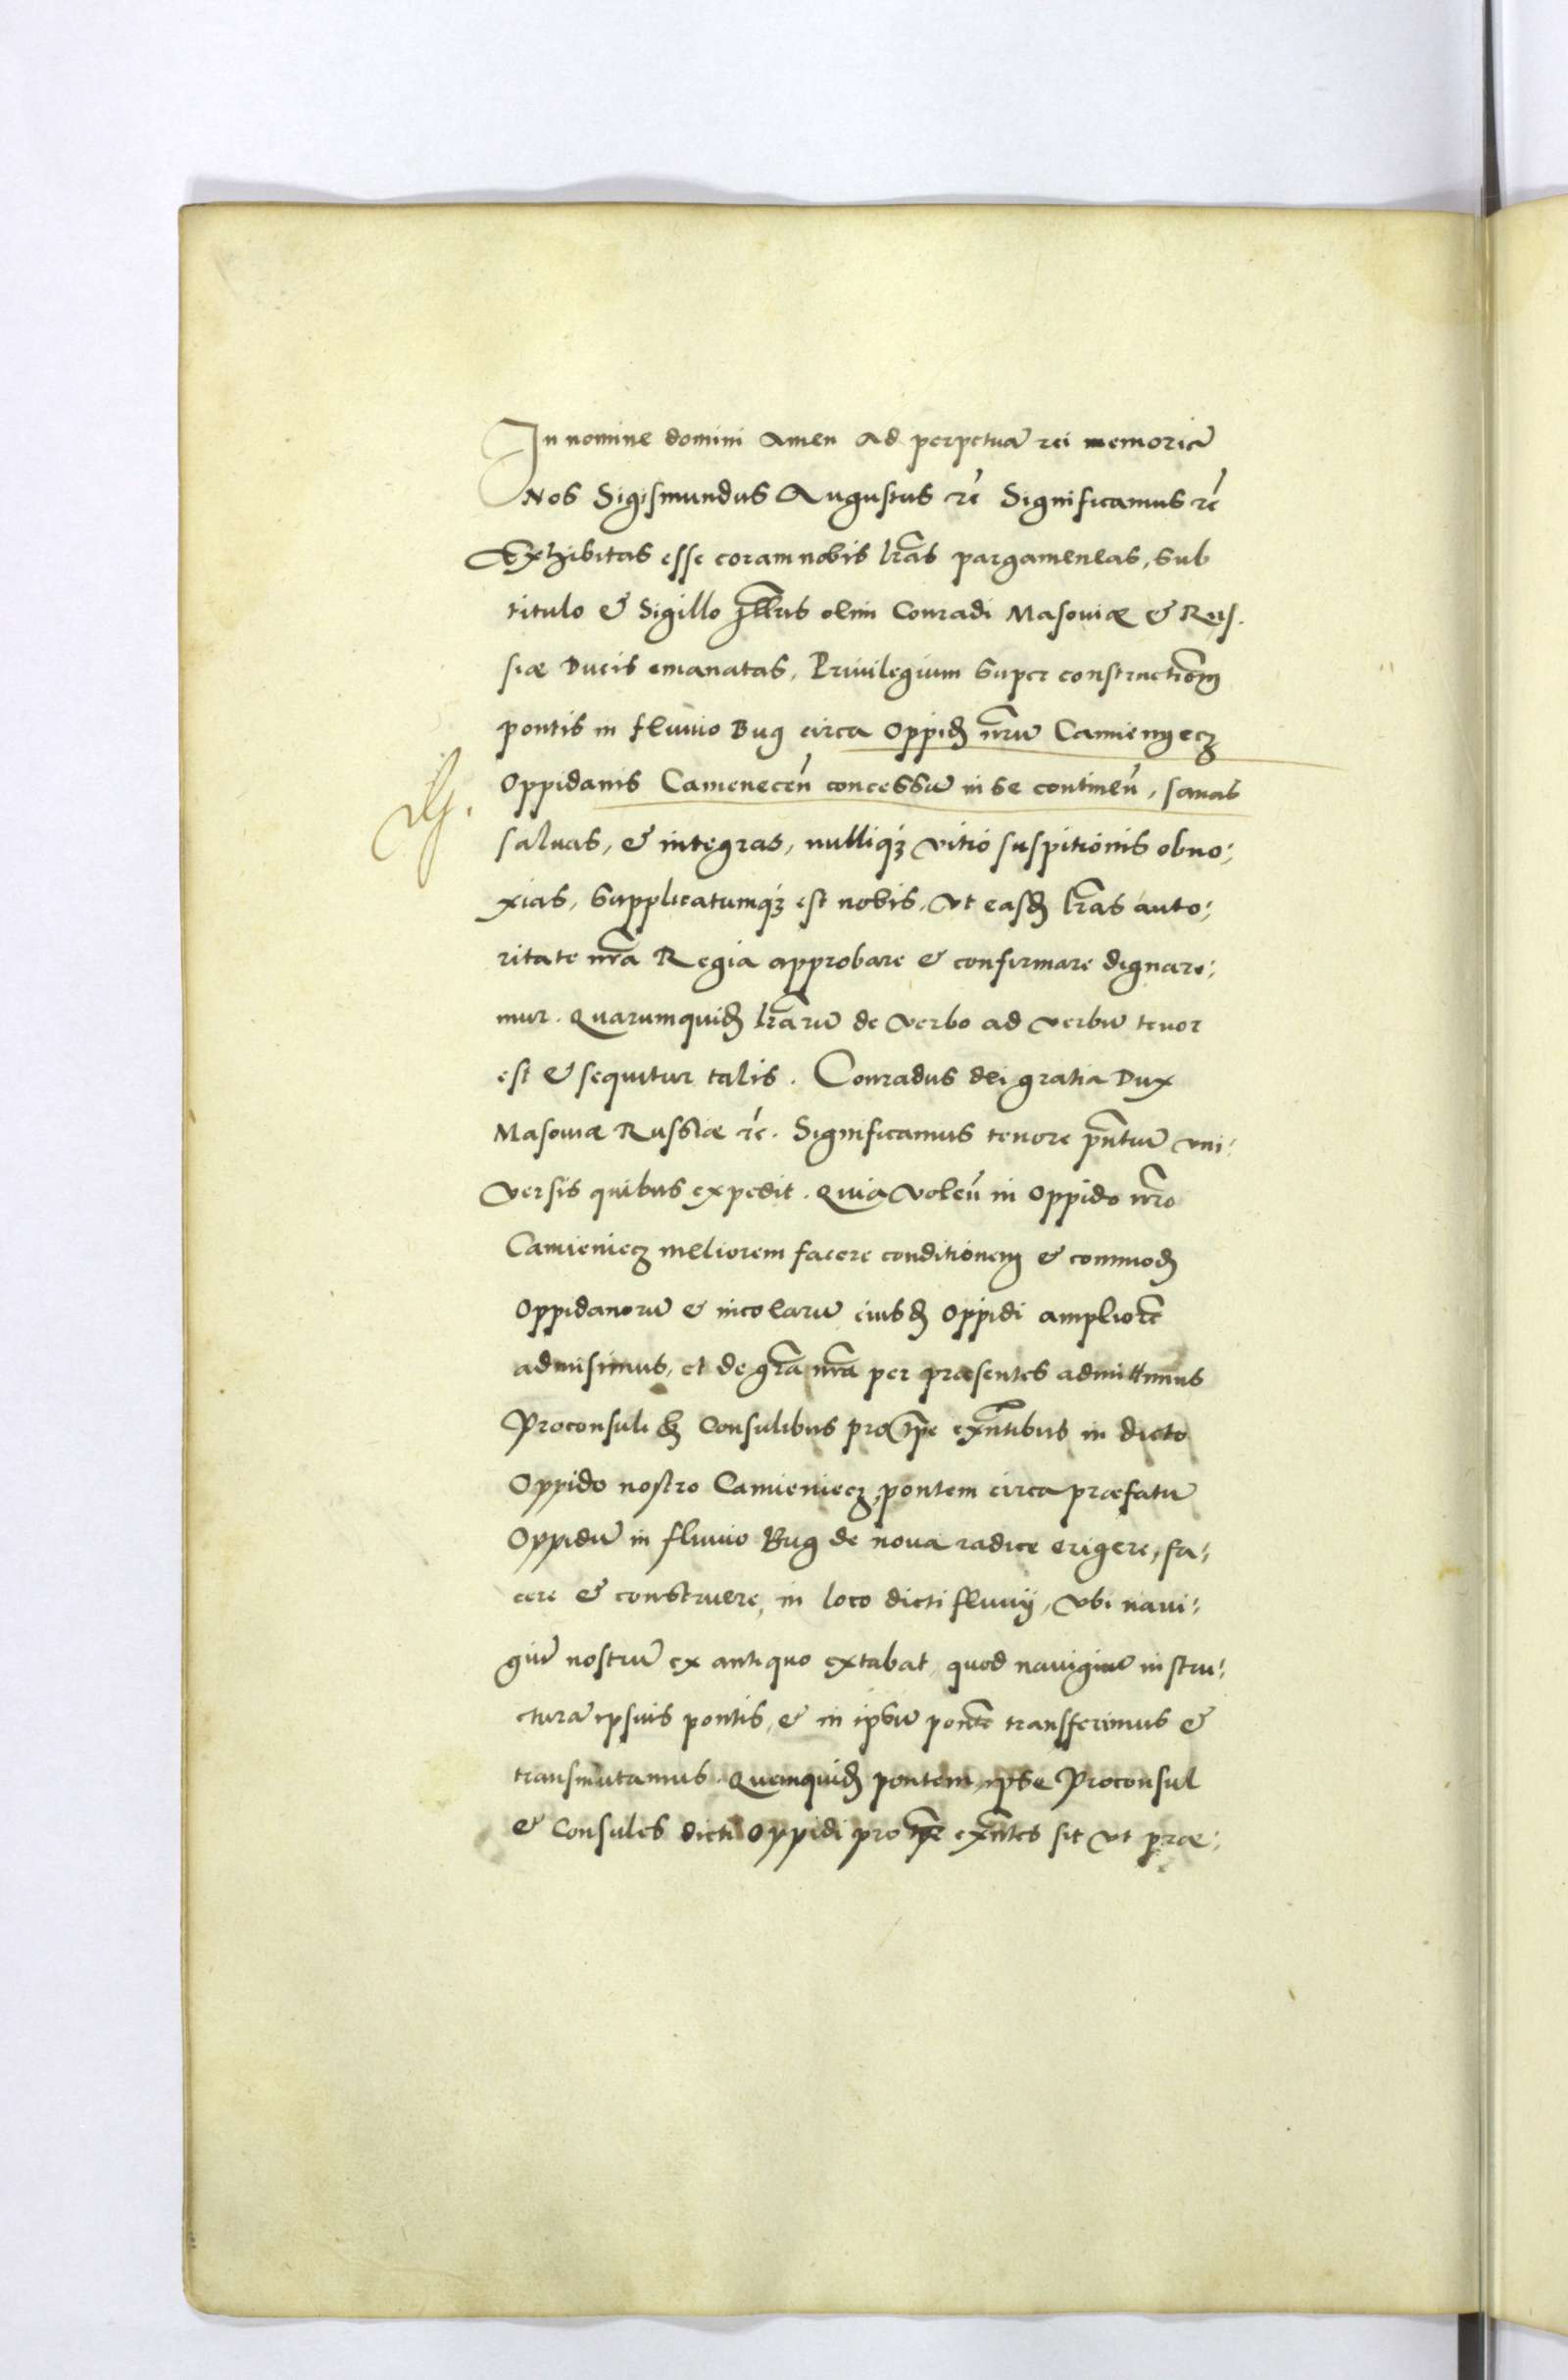 In nomine domini Amen Ad perpetuā rei memoriā
Nos Sigismundus Augustus rc̄ Significamus rc̄
Exhibitas esse coram nobis lr̄as pargameneas, sub
titulo & Sigillo Illr̄is olim Conradi Masouiæ & Rus.
siæ Ducis emanatas, Priuilegium super constructiōem
pontis in fluuio Bug circa Oppiđ nr̄um Camienyecz
Oppidanis Camenecen̄ concessū in se continen̄, sanas
saluas, & integras, nulliqȝ vitio suspitionis obno:
xias, Supplicatumqȝ est nobis, vt easđ lr̄as auto:
ritate nr̄a Regia approbare & confirmare dignare:
mur. Quarumquiđ lr̄arū de verbo ad verbū tenor
est & sequitur talis. Conradus dei gratia Dux
Masouiæ Russiæ rc̄. Significamus tenore pn̄tiū vni:
versis quibus expedit. Quia volen̄ in Oppido nr̄o
Camieniecz meliorem facere conditionem & commođ
Oppidanorū & incolarū eiusđ Oppidi ampliorē
admisimus, et de gr̄a nr̄a per præsentes admittimus
Proconsuli & Consulibus pro tp̄e exn̄tibus in dicto
Oppido nostro Camieniecz, pontem circa præfatū
Oppidū in fluuio Bug de noua radice erigere, fa:
cere & construere, in loco dicti fluuij, vbi naui:
giū nostrū ex antiquo extabat, quod nauigiū in stru:
cturā ipsius pontis, & in ipsū pontē transferimus &
transmutamus. Quemquiđ pontem, ipse Proconsul
& Consules dicti Oppidi pro tp̄e exn̄tes sit vt præ: